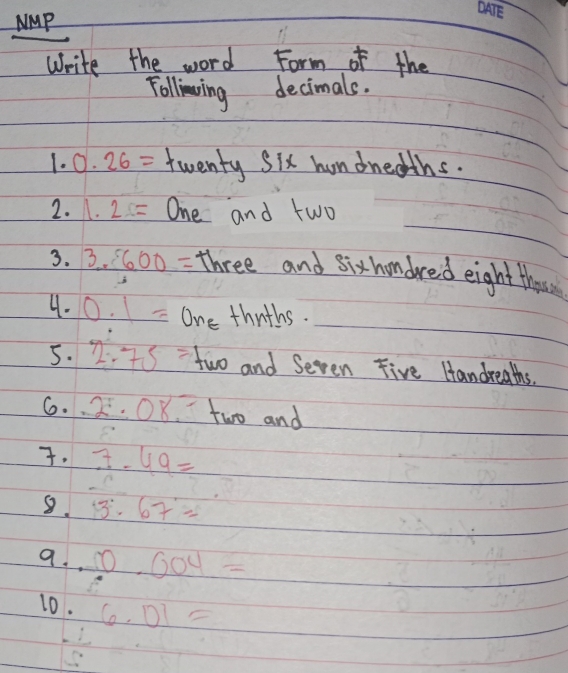 NMP
DATE
Write the word Form of the
Following decimals.
1. 0.26 = twenty six hundnedths.
2. 1.2 = One and two
3. 3.600 = three and sixhundred eight
4. 0.1 = One thnths.
5. 2.75 = two and Seven Five Handreaths.
6. 2.08 = two and
7. 7.49 =
8. 3.67 =
9. 0.604 =
10. 6.01 =